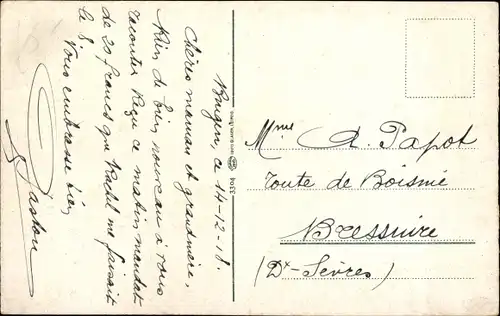 ce 14-12-18.
Chères maman et grandmère,
Rien de bien nouveau à vous
raconter Reçu ce matin mandat
de 20 francs que Rachel me faisait
le 8
Vous embrasse bien
Gaston
33504
Mme A. Papot
route de Boismé
Bressuire
(Dx-Sèvres)